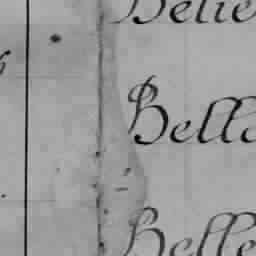 Belie
Belle
Belle